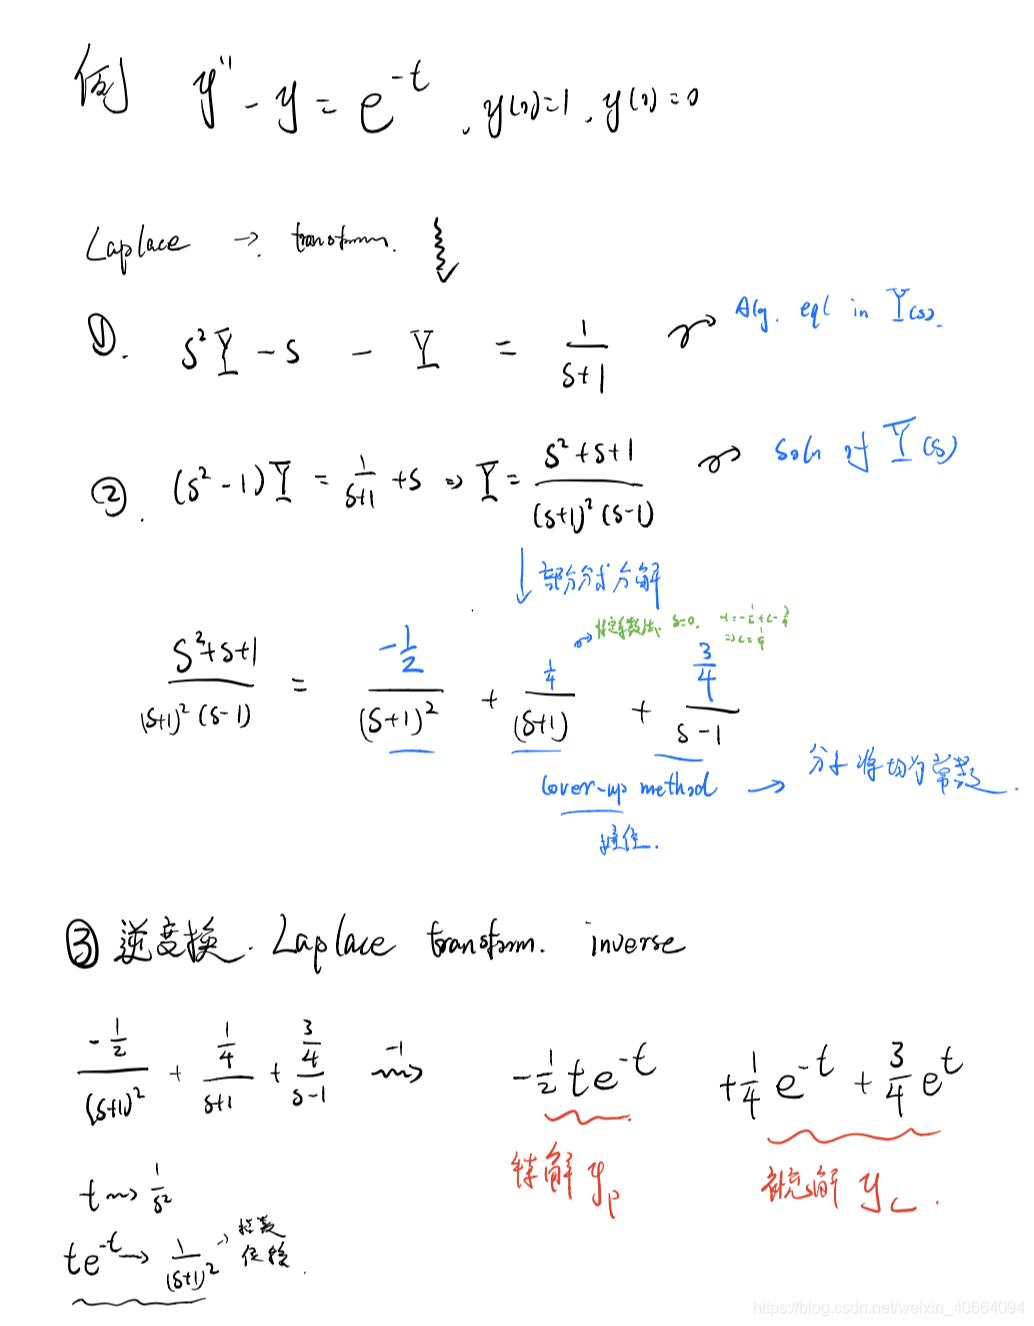 例 y'' - y = e^{-t}, y(0)=1, y(0)=0
Laplace → transform.
①. s²Y - s - Y = 1/(s+1) ⇝ Alg. eql in Y(s).
②. (s²-1)Y = 1/(s+1) + s ⇒ Y = (s²+s+1)/((s+1)²(s-1)) ⇝ soln of Y(s)
↓ 部分分式分解
待定系数法 s=0. -1=-1/2+c-3/4
⇒ c=1/4
(s²+s+1)/((s+1)²(s-1)) = (-1/2)/(s+1)² + (1/4)/(s+1) + (3/4)/(s-1)
Cover-up method → 分子将均为常数.
③ 逆变换. Laplace transform. inverse
(-1/2)/(s+1)² + (1/4)/(s+1) + (3/4)/(s-1) ⇝^{-1} -1/2 te^{-t} + 1/4 e^{-t} + 3/4 e^t
特解 y_p 补充解 y_c.
t ⇝ 1/s²
te^{-t} → 1/(s+1)² → 指数
位移.
https://blog.csdn.net/weixin_40664094